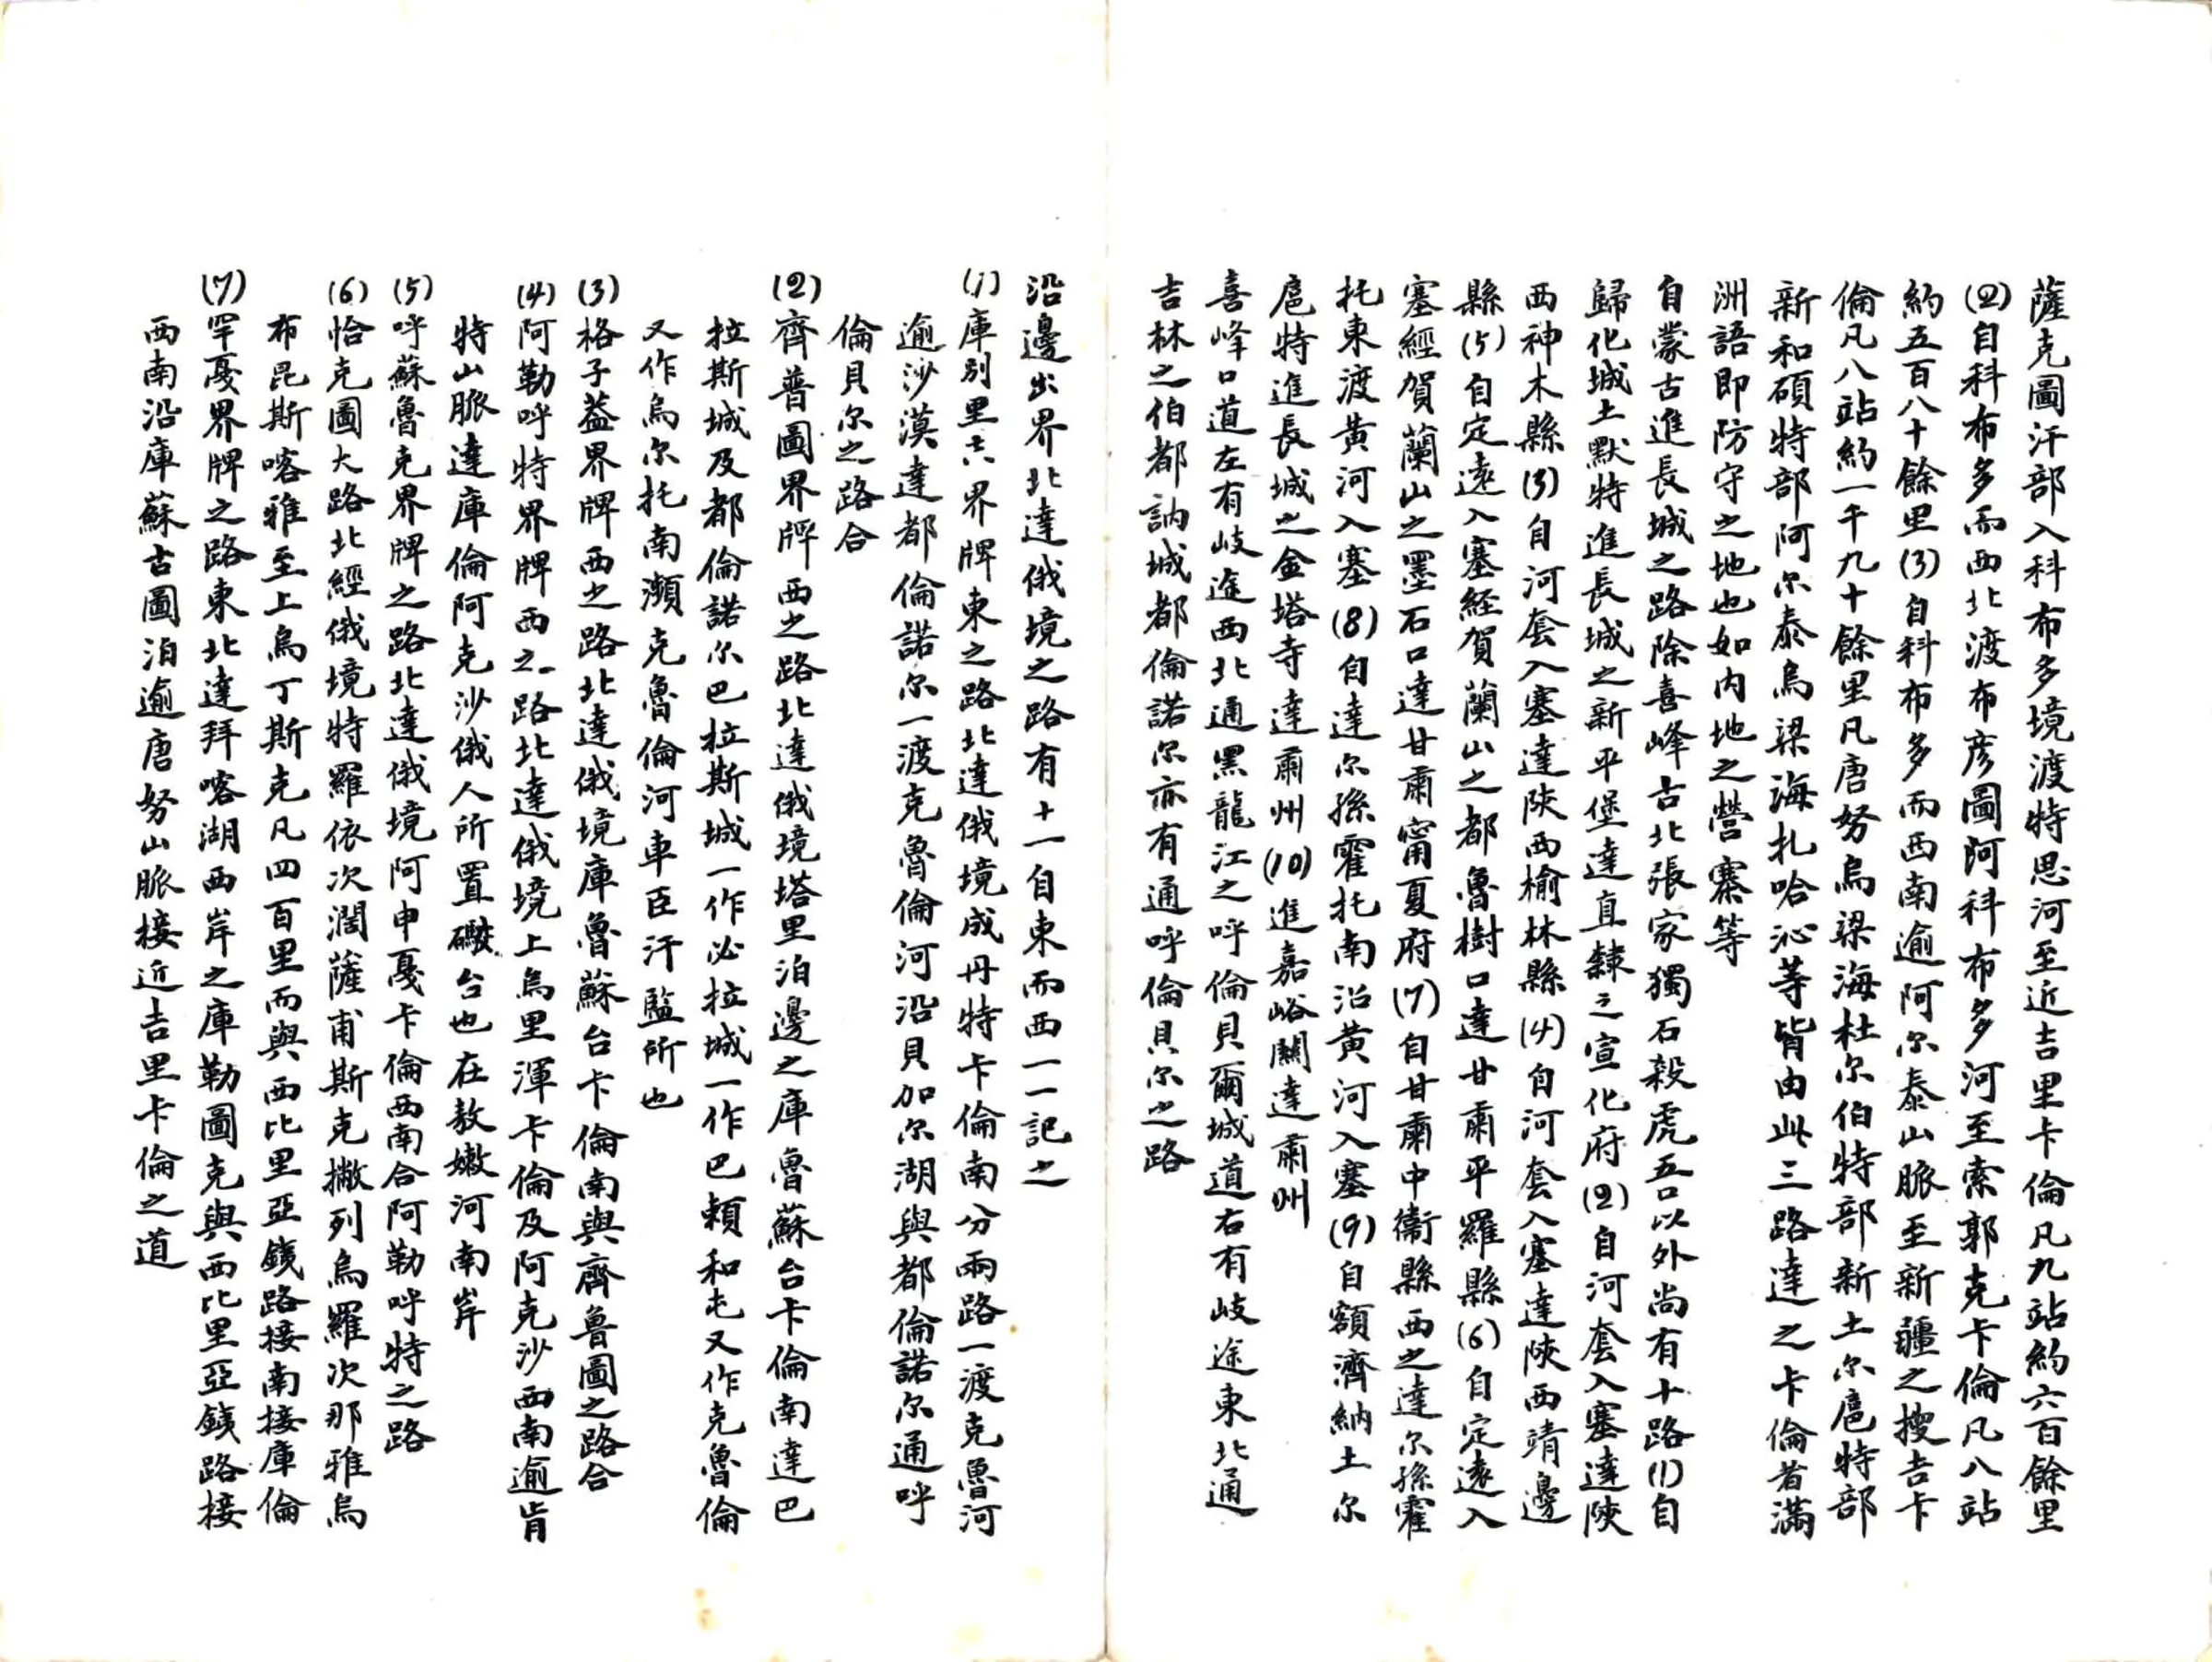 薩克圖汗部入科布多境渡特思河至近吉里卡倫凡九站約六百餘里
(2)自科布多而西北渡布彦圖阿科布多河至索郭克卡倫凡八站
約五百八十餘里(3)自科布多而西南逾阿尔泰山脈至新疆之搜吉卡
倫凡八站約一千九十餘里凡唐努烏梁海杜尔伯特部新土尔扈特部
新和碩特部阿尔泰烏梁海扎哈沁等皆由此三路達之卡倫者滿
洲語即防守之地也如内地之營寨等
自蒙古進長城之路除喜峰古北張家獨石殺虎五口以外尚有十路(1)自
歸化城土默特進長城之新平堡達直隸之宣化府(2)自河套入塞達陝
西神木縣(3)自河套入塞達陝西榆林縣(4)自河套入塞達陝西靖邊
縣(5)自定遠入塞経賀蘭山之都魯樹口達甘肅平羅縣(6)自定遠入
塞經賀蘭山之墨石口達甘肅甯夏府(7)自甘肅中衞縣西之達尔孫霍
托東渡黄河入塞(8)自達尔孫霍托南沿黄河入塞(9)自額濟納土尔
扈特進長城之金塔寺達肅州(10)進嘉峪關達肅州
喜峰口道左有歧途西北通黑龍江之呼倫貝爾城道右有歧途東北通
吉林之伯都訥城都倫諾尔亦有通呼倫貝尔之路
沿邊出界北達俄境之路有十一自東而西一一記之
(1)庫別里吉界牌東之路北達俄境成丹特卡倫南分兩路一渡克魯河
逾沙漠達都倫諾尔一渡克魯倫河沿貝加尔湖與都倫諾尔通呼
倫貝尔之路合
(2)齊普圖界牌西之路北達俄境塔里泊邊之庫魯蘇台卡倫南達巴
拉斯城及都倫諾尔巴拉斯城一作必拉城一作巴賴和屯又作克魯倫
又作烏尔托南瀕克魯倫河車臣汗監所也
(3)格子蓋界牌西之路北達俄境庫魯蘇台卡倫南與齊魯圖之路合
(4)阿勒呼特界牌西之路北達俄境上烏里渾卡倫及阿克沙西南逾肯
特山脈達庫倫阿克沙俄人所置礮台也在敖嫩河南岸
(5)呼蘇魯克界牌之路北達俄境阿申戞卡倫西南合阿勒呼特之路
(6)恰克圖大路北經俄境特羅依次濶薩甫斯克撇列烏羅次那雅烏
布昆斯喀雅至上烏丁斯克凡四百里而與西比里亞鐵路接南接庫倫
(7)罕戞界牌之路東北達拜喀湖西岸之庫勒圖克與西比里亞鐵路接
西南沿庫蘇古圖泊逾唐努山脈接近吉里卡倫之道